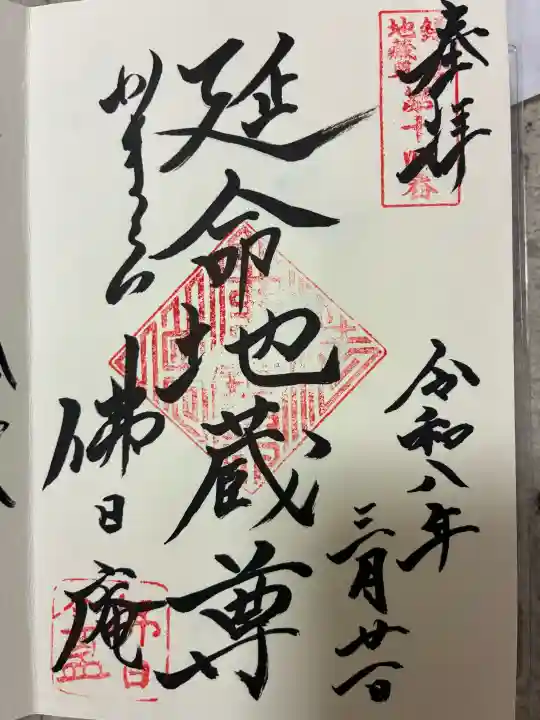 奉拝
地蔵尊
第十四番
令和八年
三月廿一日
延命地蔵尊
かまくら
佛日庵